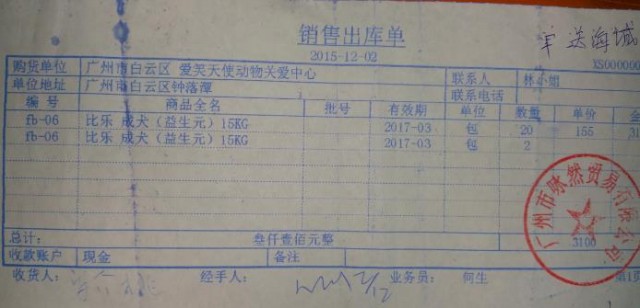 销售出库单
2015-12-02
送海城
XS000000
购货单位 广州市白云区 爱芙天使动物关爱中心 联系人 林小姐
单位地址 广州市白云区钟落潭 联系电话
编号 商品全名 批号 有效期 单位 数量 单价 金
fb-06 比乐 成犬（益生元）15KG 2017-03 包 20 155 31
fb-06 比乐 成犬（益生元）15KG 2017-03 包 2
广州市 然贸易有限公司
总计: 叁仟壹佰元整 3100
收款账户 现金 备注
收货人: 经手人: 业务员: 何生 第1